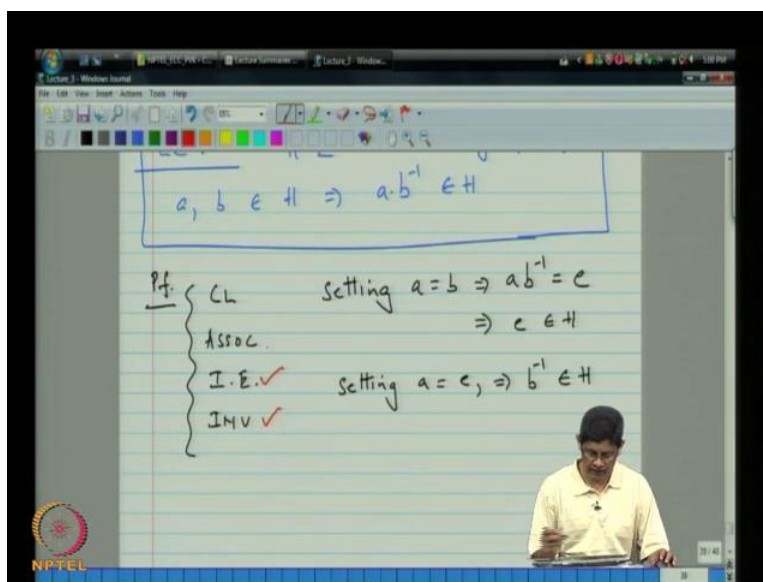 Lecture_3 - Windows Journal
File Edit View Insert Actions Tools Help
a, b ∈ H ⇒ a·b⁻¹ ∈ H
Pf.
CL
Setting a = b ⇒ ab⁻¹ = e
⇒ e ∈ H
ASSOC.
I.E. ✓
Setting a = e, ⇒ b⁻¹ ∈ H
INV ✓
NPTEL